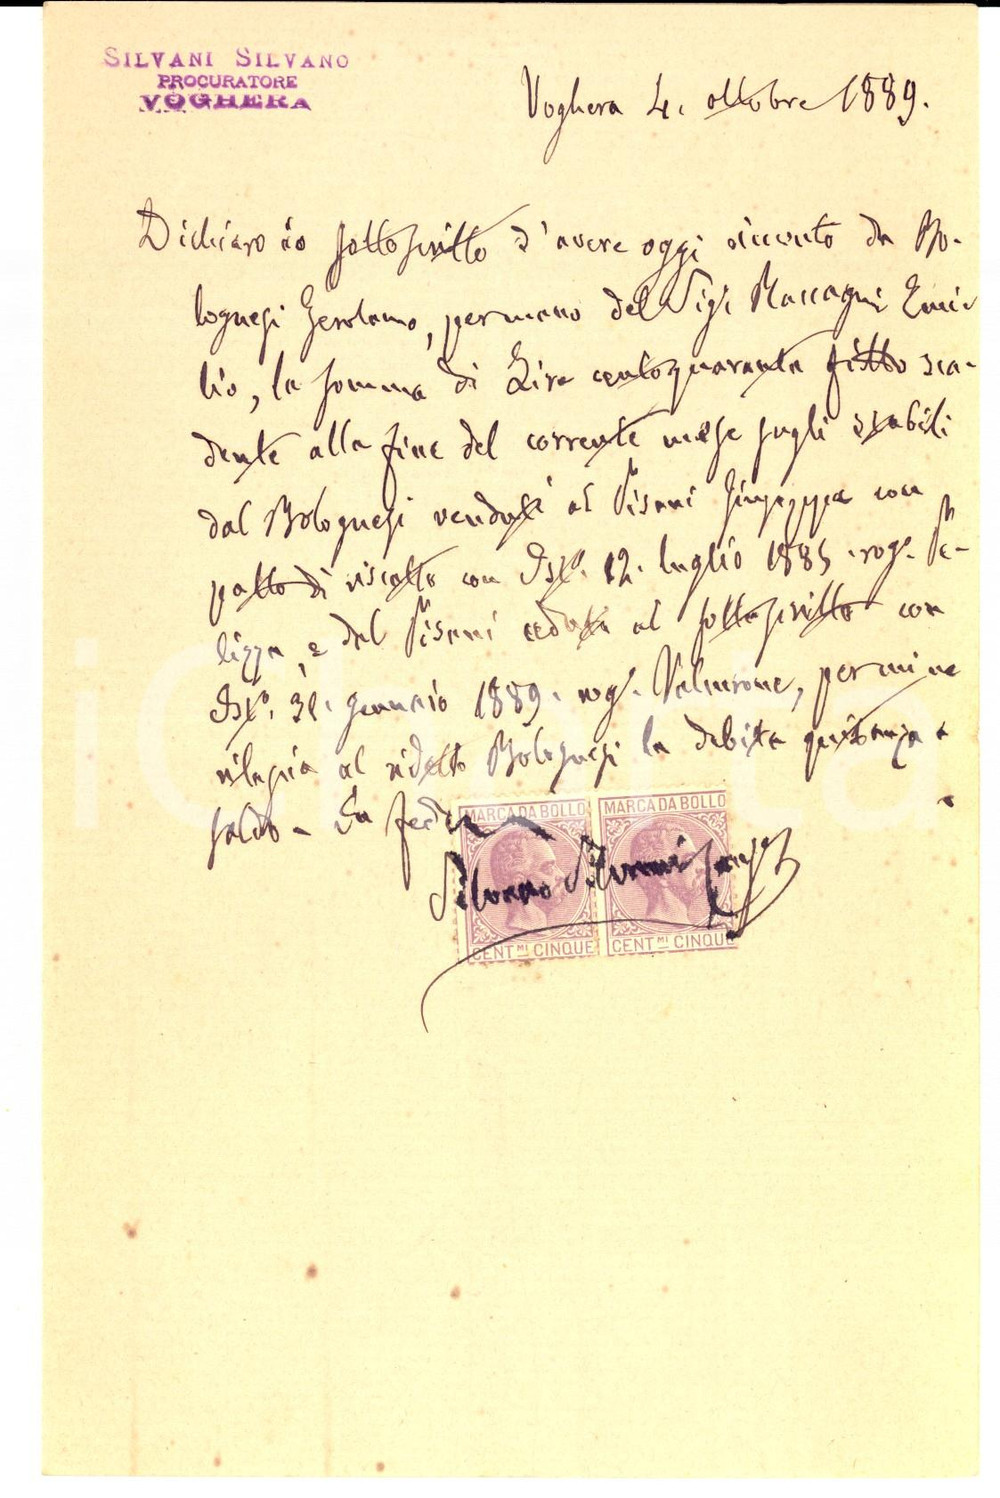 SILVANI SILVANO
PROCURATORE
VOGHERA
Voghera 4. ottobre 1889.
Dichiaro io sottoscritto d'avere oggi ricevuto da Bo-
lognesi Gerolamo, per mano del Sigr Maccagni Emi-
lio, la somma di Lire centoquaranta fitto sca-
dente alla fine del corrente mese sugli stabili
dal Bolognesi venduti al Pisani Giuseppe con
patto di riscatto con Isto. 12. luglio 1885 rogo. Pe-
lizza, e dal Pisani ceduti al sottoscritto con
Isto. 31. Gennaio 1889. rogo. , per cui ne
rilascia al ridetto Bolognesi la debita quitanza a
saldo - In fede
MARCA DA BOLLO MARCA DA BOLLO
Silvano Silvani
CENT.MI CINQUE CENT.MI CINQUE